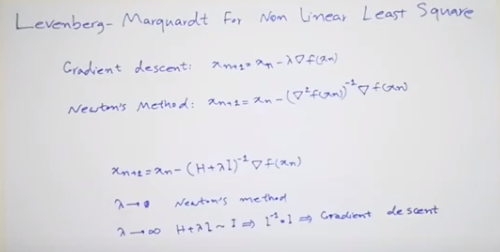 Levenberg-Marquardt For Non Linear Least Square
Gradient descent: xn+1 = xn - λ∇f(xn)
Newton's Method: xn+1 = xn - (∇²f(xn))⁻¹∇f(xn)
xn+1 = xn - (H+λI)⁻¹∇f(xn)
λ→0 Newton's method
λ→∞ H+λI ~ I ⇒ I⁻¹=I ⇒ Gradient descent